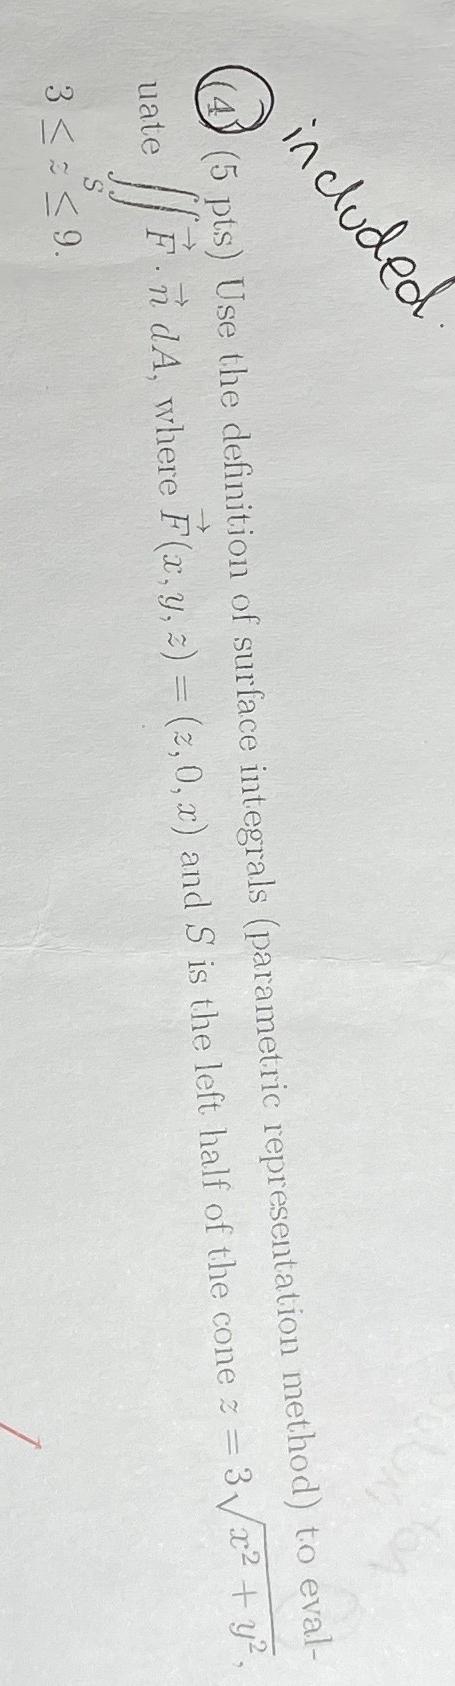 included.
(4) (5 pts) Use the definition of surface integrals (parametric representation method) to eval-
uate ∬_S F⃗ · n⃗ dA, where F⃗(x, y, z) = (z, 0, x) and S is the left half of the cone z = 3√(x² + y²),
3 ≤ z ≤ 9.